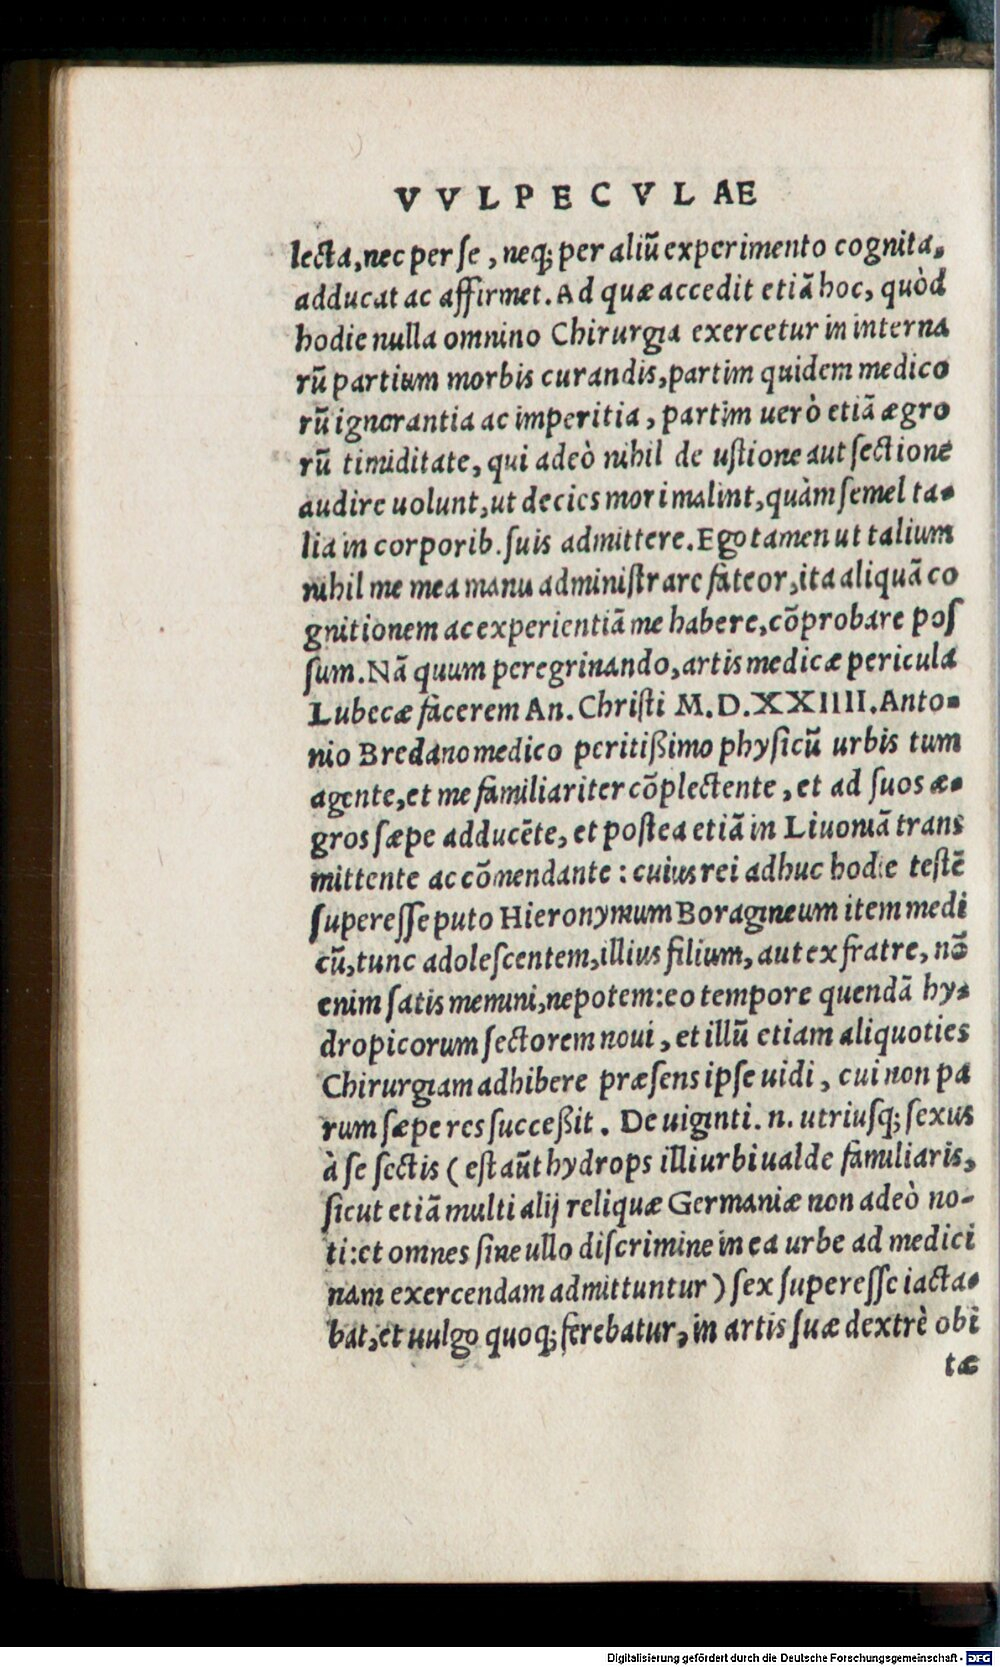 VVLPECVLAE
lecta, nec per se, neq; per aliũ experimento cognita,
adducat ac affirmet. Ad quæ accedit etiã hoc, quòd
hodie nulla omnino Chirurgia exercetur in interna
rũ partium morbis curandis, partim quidem medico
rũ ignorantia ac imperitia, partim uerò etiã ægro
rũ timiditate, qui adeò nihil de ustione aut sectione
audire uolunt, ut decies mori malint, quàm semel ta-
lia in corporib. suis admittere. Ego tamen ut talium
nihil me mea manu administrare fateor, ita aliquã co
gnitionem ac experientiã me habere, cõprobare pos
sum. Nã quum peregrinando, artis medicæ pericula
Lubecæ facerem An. Christi M.D.XXIIII. Anto-
nio Bredano medico peritißimo physicũ urbis tum
agente, et me familiariter cõplectente, et ad suos æ-
gros sæpe adducẽte, et postea etiã in Liuoniã trans
mittente ac cõmendante: cuius rei adhuc hodie testẽ
superesse puto Hieronymum Boragineum item medi
cũ, tunc adolescentem, illius filium, aut ex fratre, nõ
enim satis memini, nepotem: eo tempore quendã hy-
dropicorum sectorem noui, et illũ etiam aliquoties
Chirurgiam adhibere præsens ipse uidi, cui non pa
rum sæpe res succeßit. De uiginti. n. utriusq; sexus
à se sectis (est aũt hydrops illi urbi ualde familiaris,
sicut etiã multi alij reliquæ Germaniæ non adeò no-
ti: et omnes sine ullo discrimine in ea urbe ad medici
nam exercendam admittuntur) sex superesse iacta-
bat, et uulgo quoq; ferebatur, in artis suæ dextrè obi
tæ
Digitalisierung gefördert durch die Deutsche Forschungsgemeinschaft - DFG